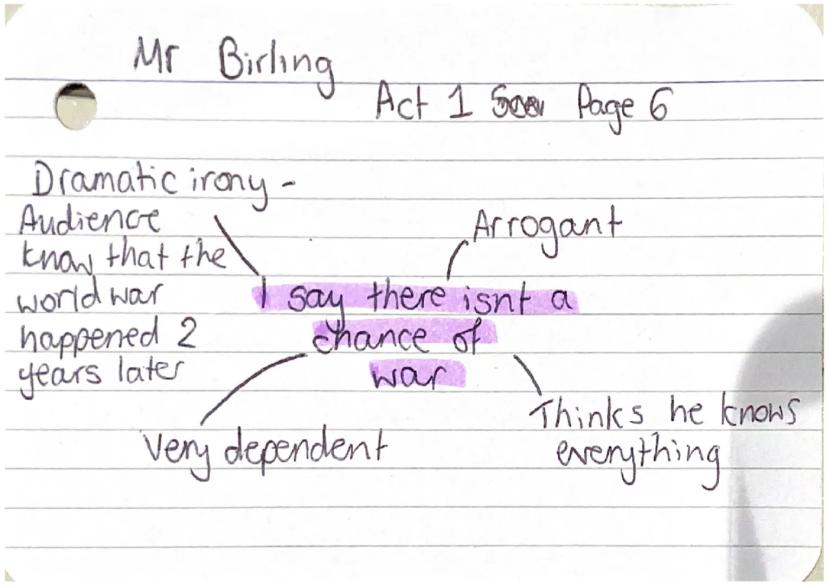 Mr Birling
Act 1 Page 6
Dramatic irony -
Audience
know that the
world war
happened 2
years later
Arrogant
I say there isnt a
chance of
war
Very dependent
Thinks he knows
everything